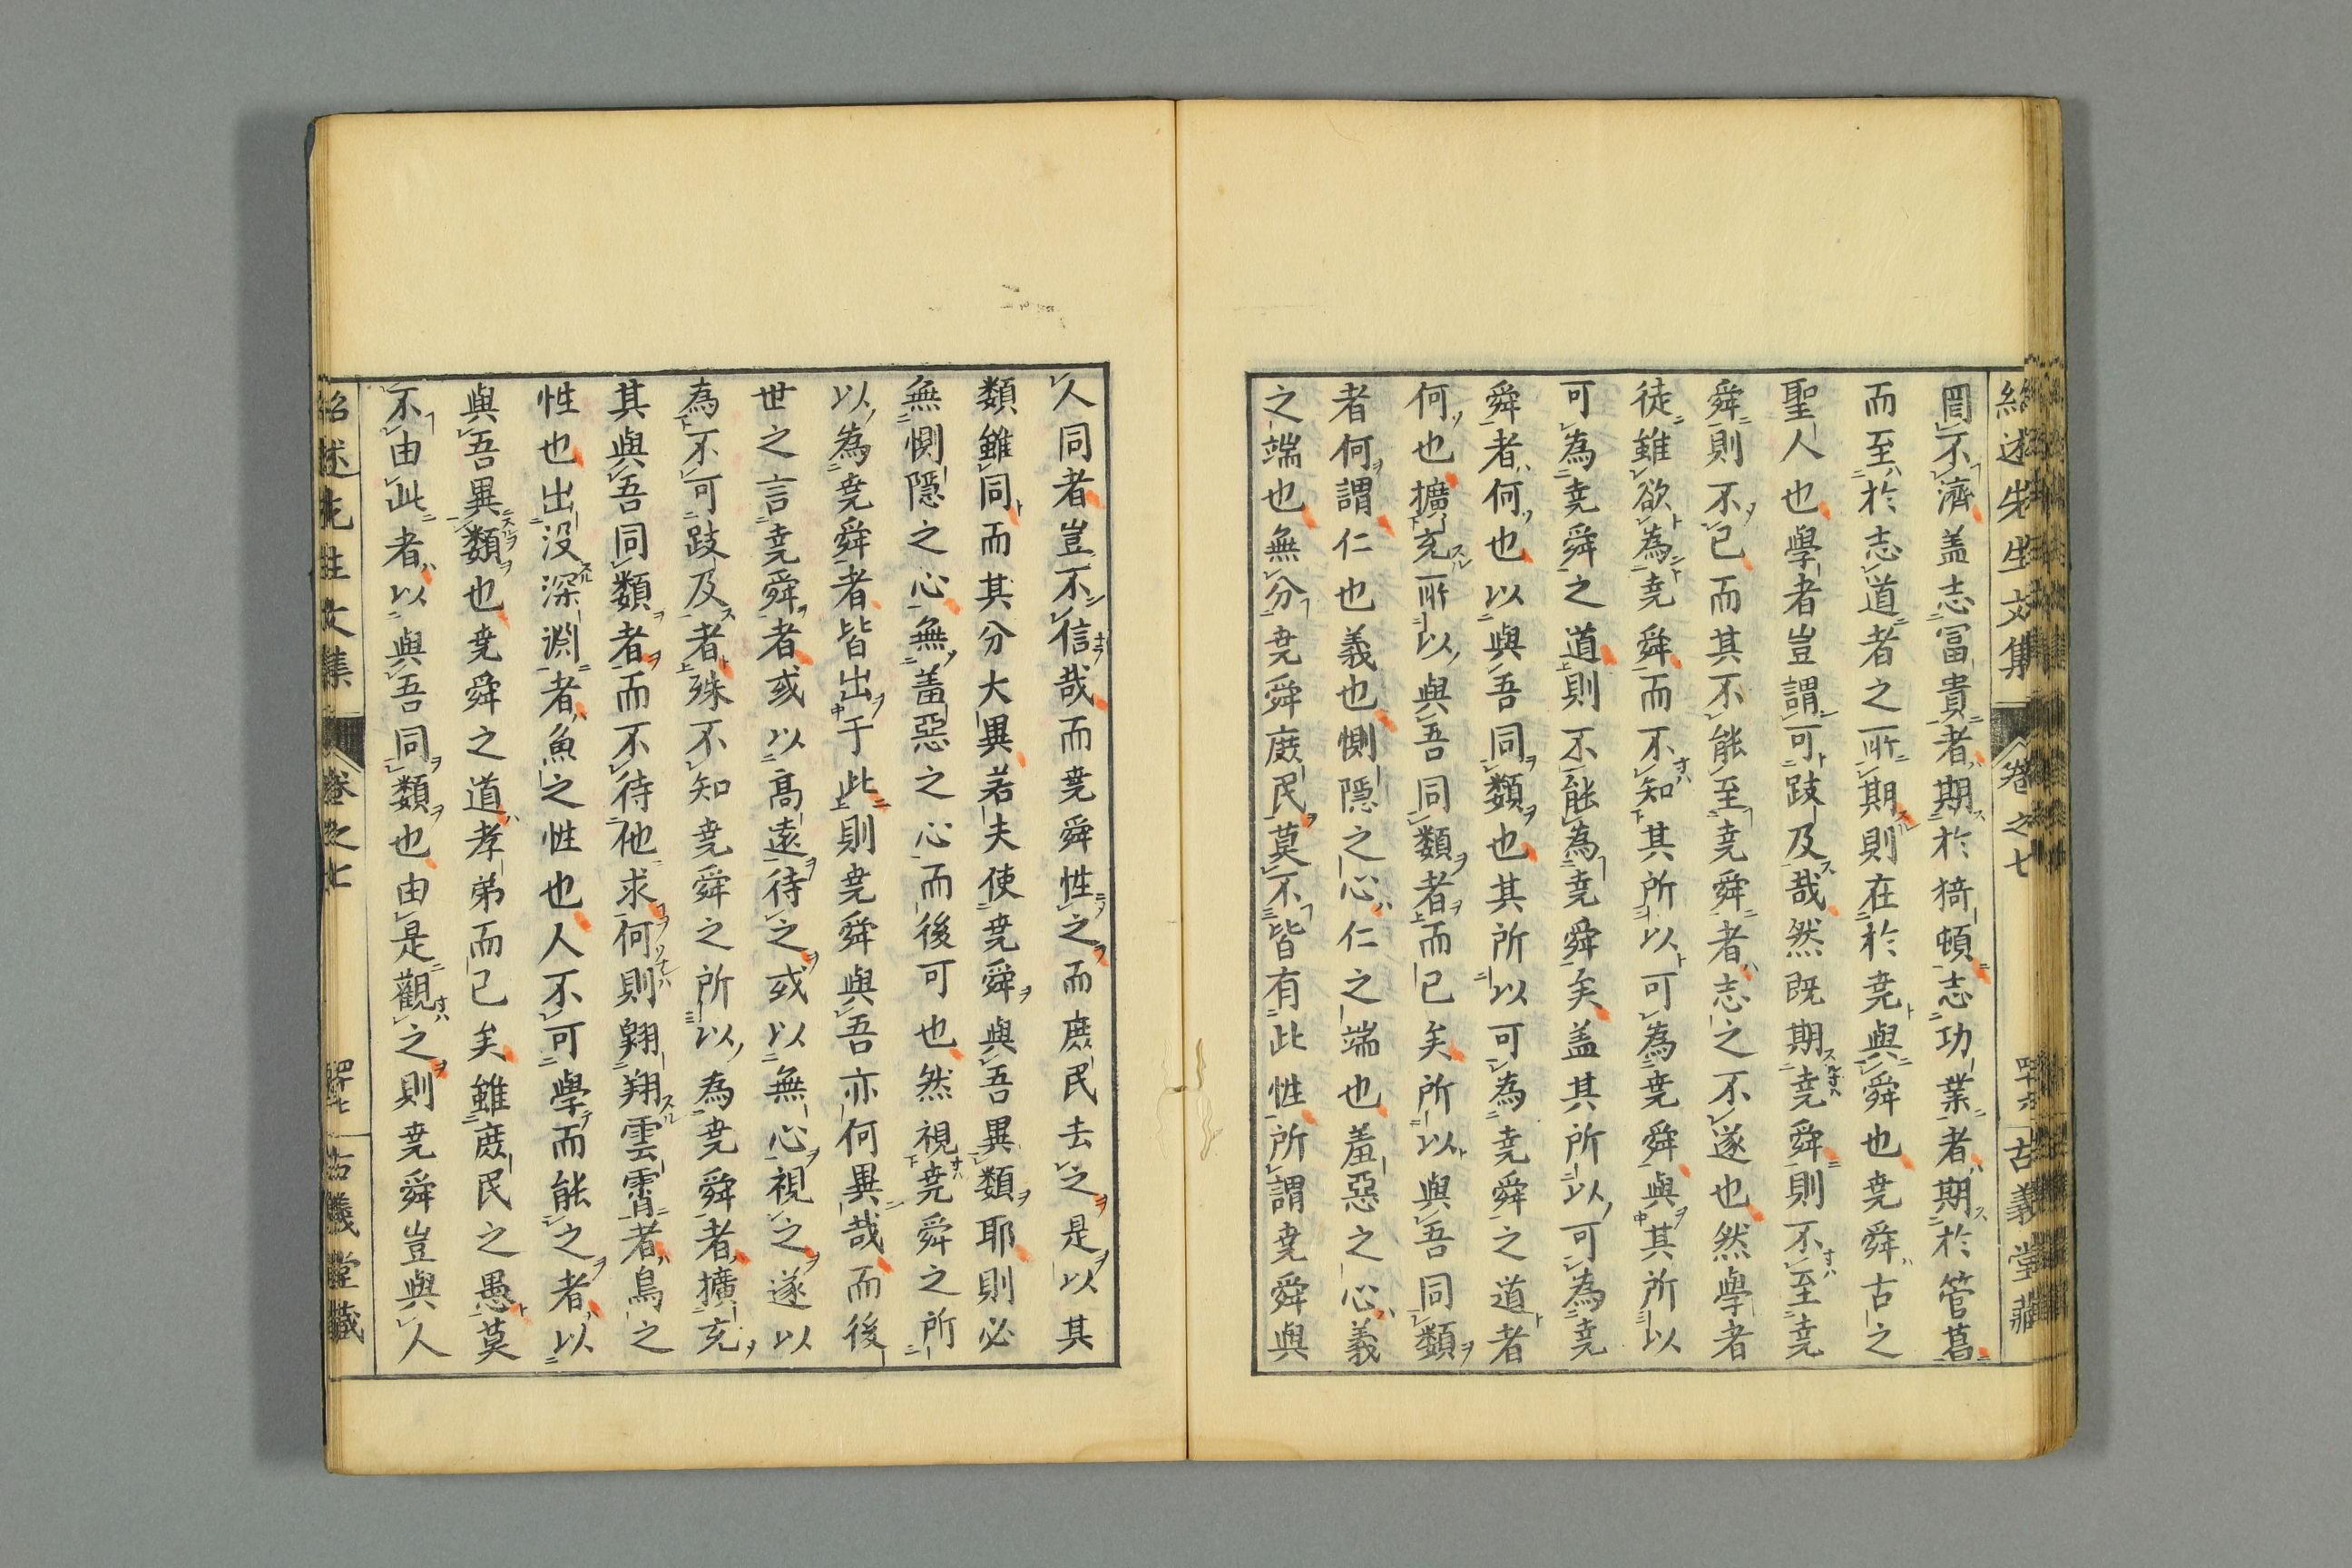 紹述先生文集 卷之七 四十六 古義堂藏
罔不濟盖志富貴者期於猗頓志功業者期於管葛
而至於志道者之所期則在於堯與舜也堯舜古之
聖人也學者豈謂可跂及哉然既期堯舜則不至堯
舜則不已而其不能至堯舜者志之不遂也然學者
徒雖欲為堯舜而不知其所以可為堯舜與其所以
可為堯舜之道則不能為堯舜矣盖其所以可為堯
舜者何也以與吾同類也其所以可為堯舜之道者
何也擴充所以與吾同類者而已矣所以與吾同類
者何謂仁也義也惻隠之心仁之端也羞惡之心義
之端也無分堯舜庶民莫不皆有此性所謂堯舜與
人同者豈不信哉而堯舜性之而庶民去之是以其
類雖同而其分大異若夫使堯舜與吾異類耶則必
無惻隠之心無羞惡之心而後可也然視堯舜之所
以為堯舜者皆出于此則堯舜與吾亦何異哉而後
世之言堯舜者或以髙遠待之或以無心視之遂以
為不可跂及者殊不知堯舜之所以為堯舜者擴充
其與吾同類者而不待他求何則翱翔雲霄者鳥之
性也出没深淵者魚之性也人不可學而能之者以
與吾異類也堯舜之道孝弟而已矣雖庶民之愚莫
不由此者以與吾同類也由是觀之則堯舜豈與人
紹述先生文集 卷之七 四十七 古義堂藏